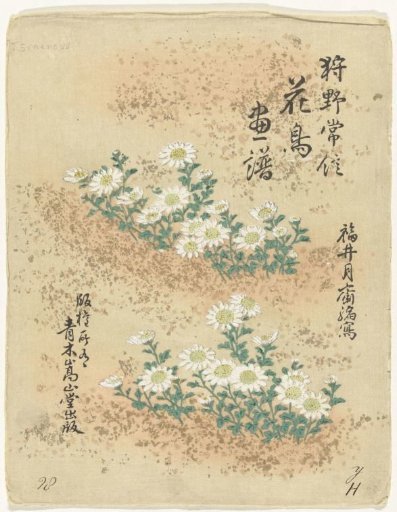 狩野常信
花鳥
画譜
福井月斎編写
版権所有
青木嵩山堂出版
98
y
H